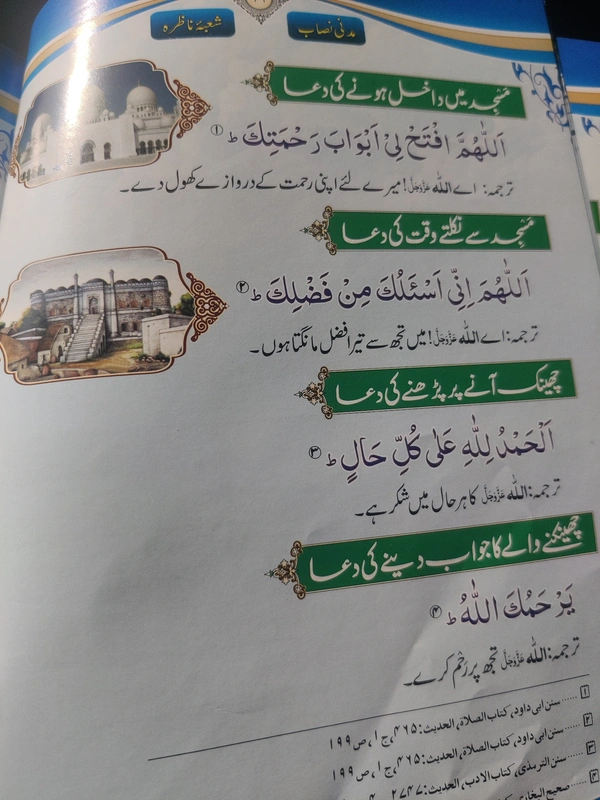 مدنی نصاب
شعبۂ ناظرہ
مَسْجِد میں داخل ہونے کی دعا
اَللّٰهُمَّ افْتَحْ لِیْ اَبْوَابَ رَحْمَتِكَ ط ①
ترجمہ: اے اللہ عَزَّوَجَلَّ! میرے لئے اپنی رحمت کے دروازے کھول دے۔
مَسْجِد سے نکلتے وقت کی دعا
اَللّٰهُمَّ اِنِّیْ اَسْئَلُكَ مِنْ فَضْلِكَ ط ②
ترجمہ: اے اللہ عَزَّوَجَلَّ! میں تجھ سے تیرا فضل مانگتا ہوں۔
چھینک آنے پر پڑھنے کی دعا
اَلْحَمْدُ لِلّٰهِ عَلٰی كُلِّ حَالٍ ط ③
ترجمہ: اللہ عَزَّوَجَلَّ کا ہر حال میں شکر ہے۔
چھینکنے والے کا جواب دینے کی دعا
یَرْحَمُكَ اللّٰهُ ط ④
ترجمہ: اللہ عَزَّوَجَلَّ تجھ پر رَحْم کرے۔
1 ...... سنن ابی داود، کتاب الصلاة، الحدیث: ۴۶۵، ج۱، ص۱۹۹
2 ...... سنن ابی داود، کتاب الصلاة، الحدیث: ۴۶۵، ج۱، ص۱۹۹
3 ...... سنن الترمذی، کتاب الادب، الحدیث: ۲۷۴۷، ج۴
4 ...... صحیح البخاری